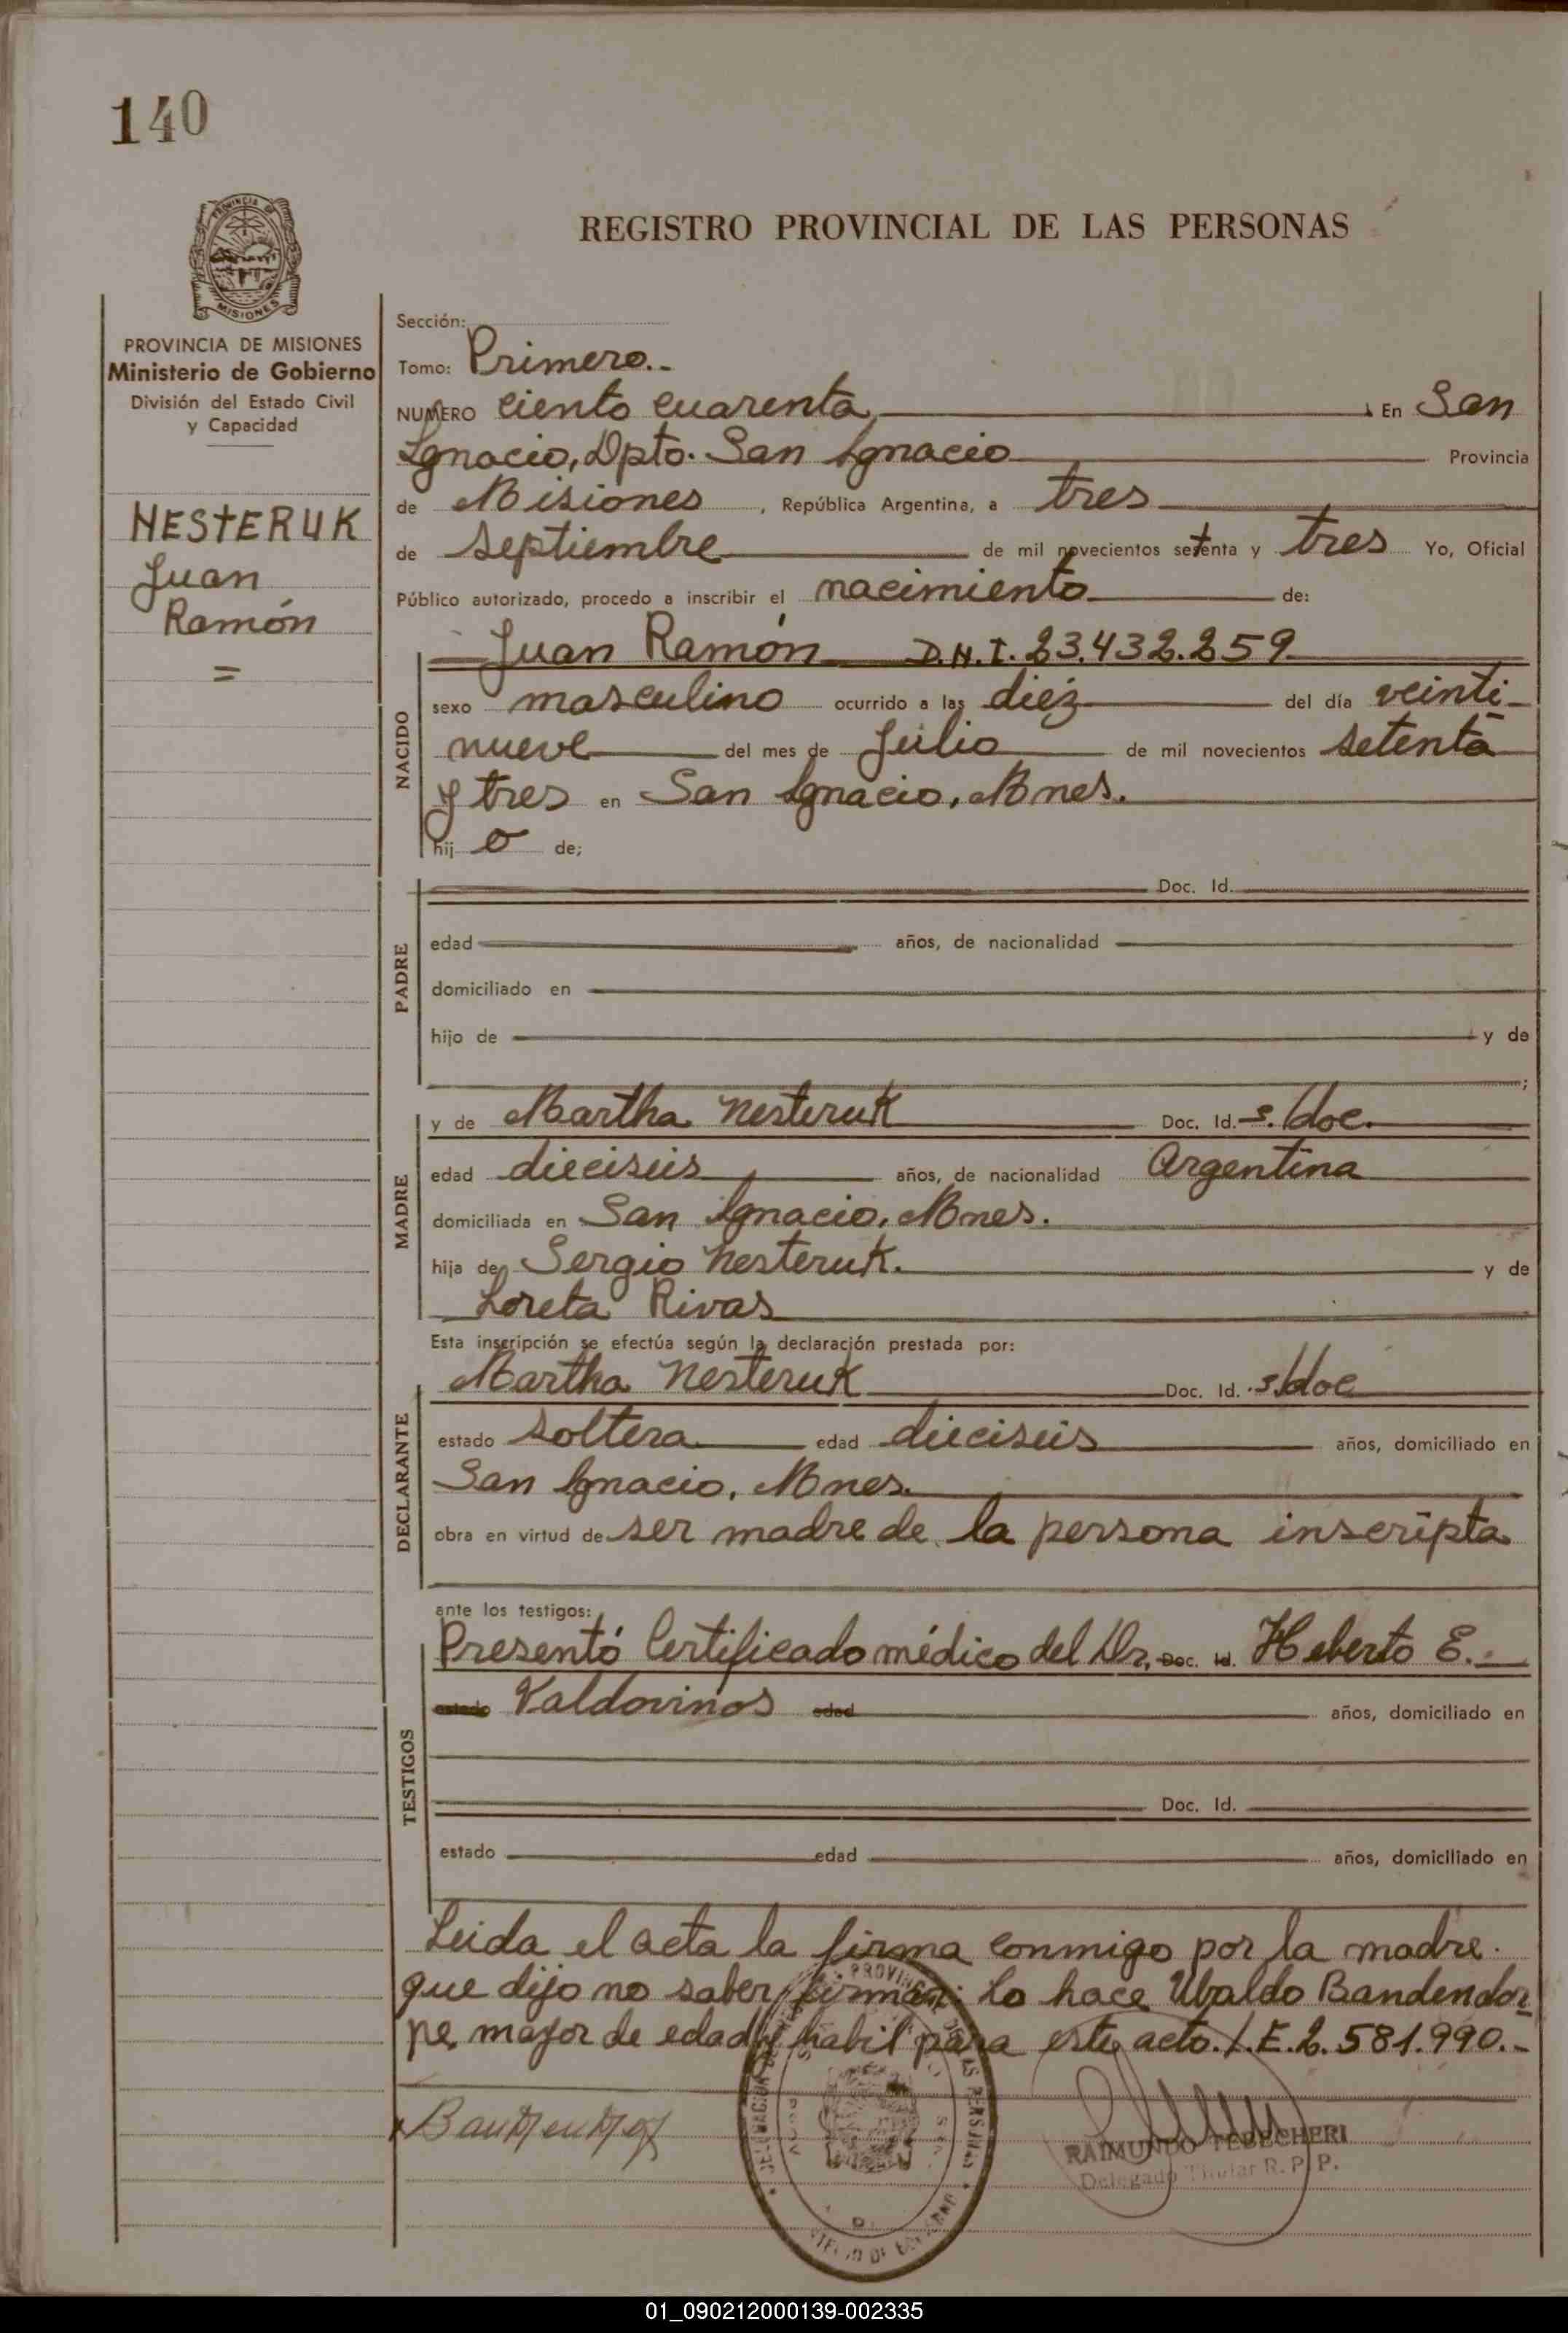 140
PROVINCIA DE
MISIONES
REGISTRO PROVINCIAL DE LAS PERSONAS
PROVINCIA DE MISIONES
Ministerio de Gobierno
División del Estado Civil
y Capacidad
NESTERUK
Juan
Ramón
=
Sección:
Tomo: Primero.-
NUMERO ciento cuarenta En San
Ignacio, Dpto. San Ignacio Provincia
de Misiones, República Argentina, a tres
de septiembre de mil novecientos setenta y tres Yo, Oficial
Público autorizado, procedo a inscribir el nacimiento de:
NACIDO
Juan Ramón D.N.I. 23.432.259
sexo masculino ocurrido a las diéz del día veinti-
nueve del mes de Julio de mil novecientos setenta
y tres en San Ignacio, Mnes.
hij o de;
PADRE
Doc. Id.
edad años, de nacionalidad
domiciliado en
hijo de y de
;
MADRE
y de Martha Nesteruk Doc. Id. s/doc.
edad dieciseis años, de nacionalidad Argentina
domiciliada en San Ignacio, Mnes.
hija de Sergio Nesteruk. y de
Loreta Rivas
Esta inscripción se efectúa según la declaración prestada por:
DECLARANTE
Martha Nesteruk Doc. Id. s/doc
estado soltera edad dieciseis años, domiciliado en
San Ignacio, Mnes.
obra en virtud de ser madre de la persona inscripta
ante los testigos:
TESTIGOS
Presentó Certificado médico del Dr. Doc. Id. Heberto E.
estado Valdovinos edad años, domiciliado en
Doc. Id.
estado edad años, domiciliado en
Leida el acta la firma conmigo por la madre
que dijo no saber firmar: lo hace Ubaldo Bandendor
pe, mayor de edad y habil para este acto. L.E. 2.581.990.-
RAIMUNDO TEBECHERI
Delegado Titular R. P. P.
01_090212000139-002335